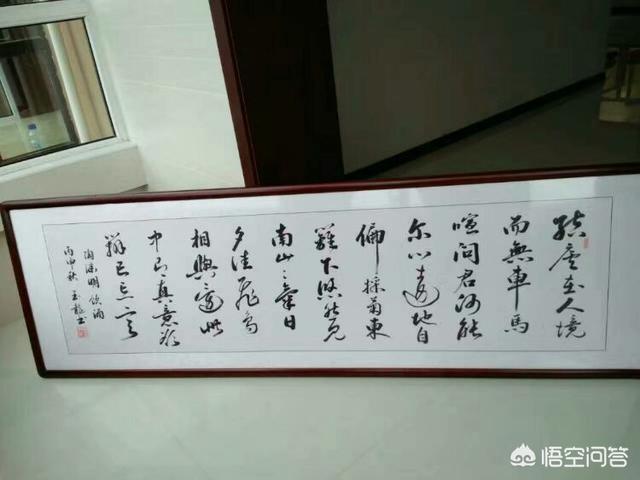 結廬在人境
而無車馬
喧問君何能
尔心遠地自
偏採菊東
籬下悠然見
南山〻氣日
夕佳飛鳥
相與還此
中有真意欲
辯已忘言
陶淵明飲酒
丙申秋玉龍書
悟空问答